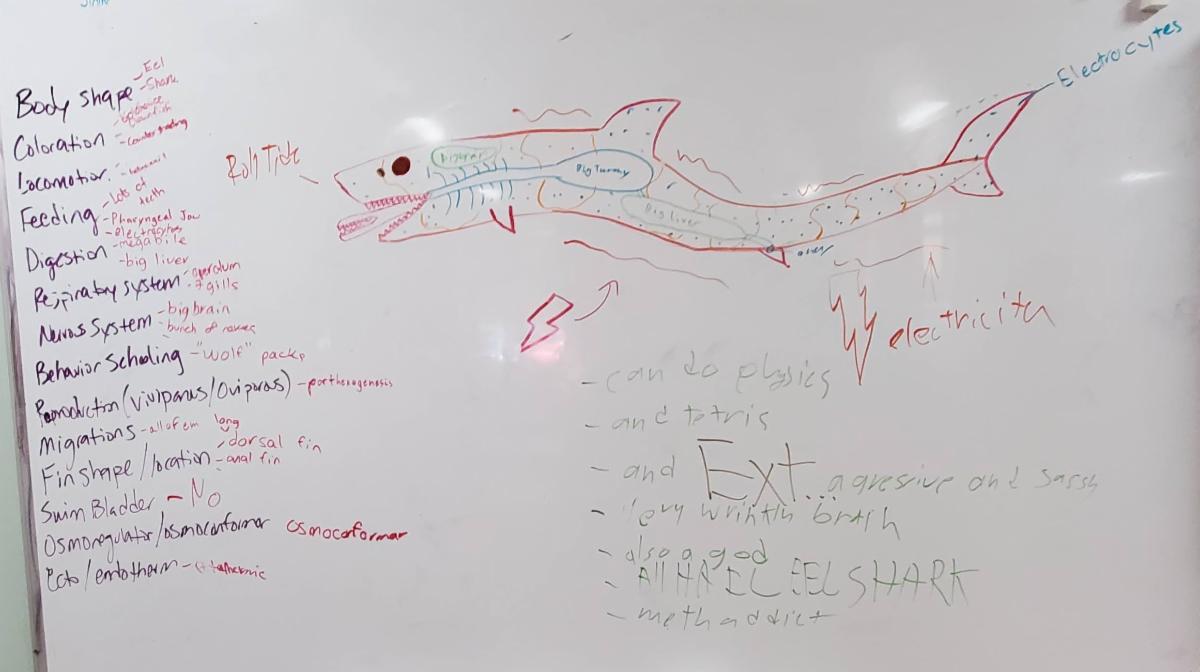 Body shape - Eel
- Shark
Coloration
- counter shading
Locomotion
Feeding - Lots of teeth
- Pharyngeal Jaw
- electrocytes
Digestion - mega bile
- big liver
Respiratory system - operculum
- 7 gills
Nervos System - big brain
- bunch of nerves
Behavior Schooling - "wolf" packs
Reproduction (Viviparus/Oviparos) - parthenogenesis
Migrations - all of em long
Fin shape / location - dorsal fin
- anal fin
Swim Bladder - No
Osmoregulator/osmoconformer osmoconformer
Ecto / endotherm -
Roll Tide
Big brain
Big Tummy
Big liver
Electrocytes
electricity
- can do physics
- and tetris
- and Ext... agresive and sassy
- Very wrinkly brain
- also a god
- All HAIL EEL SHARK
- meth addict